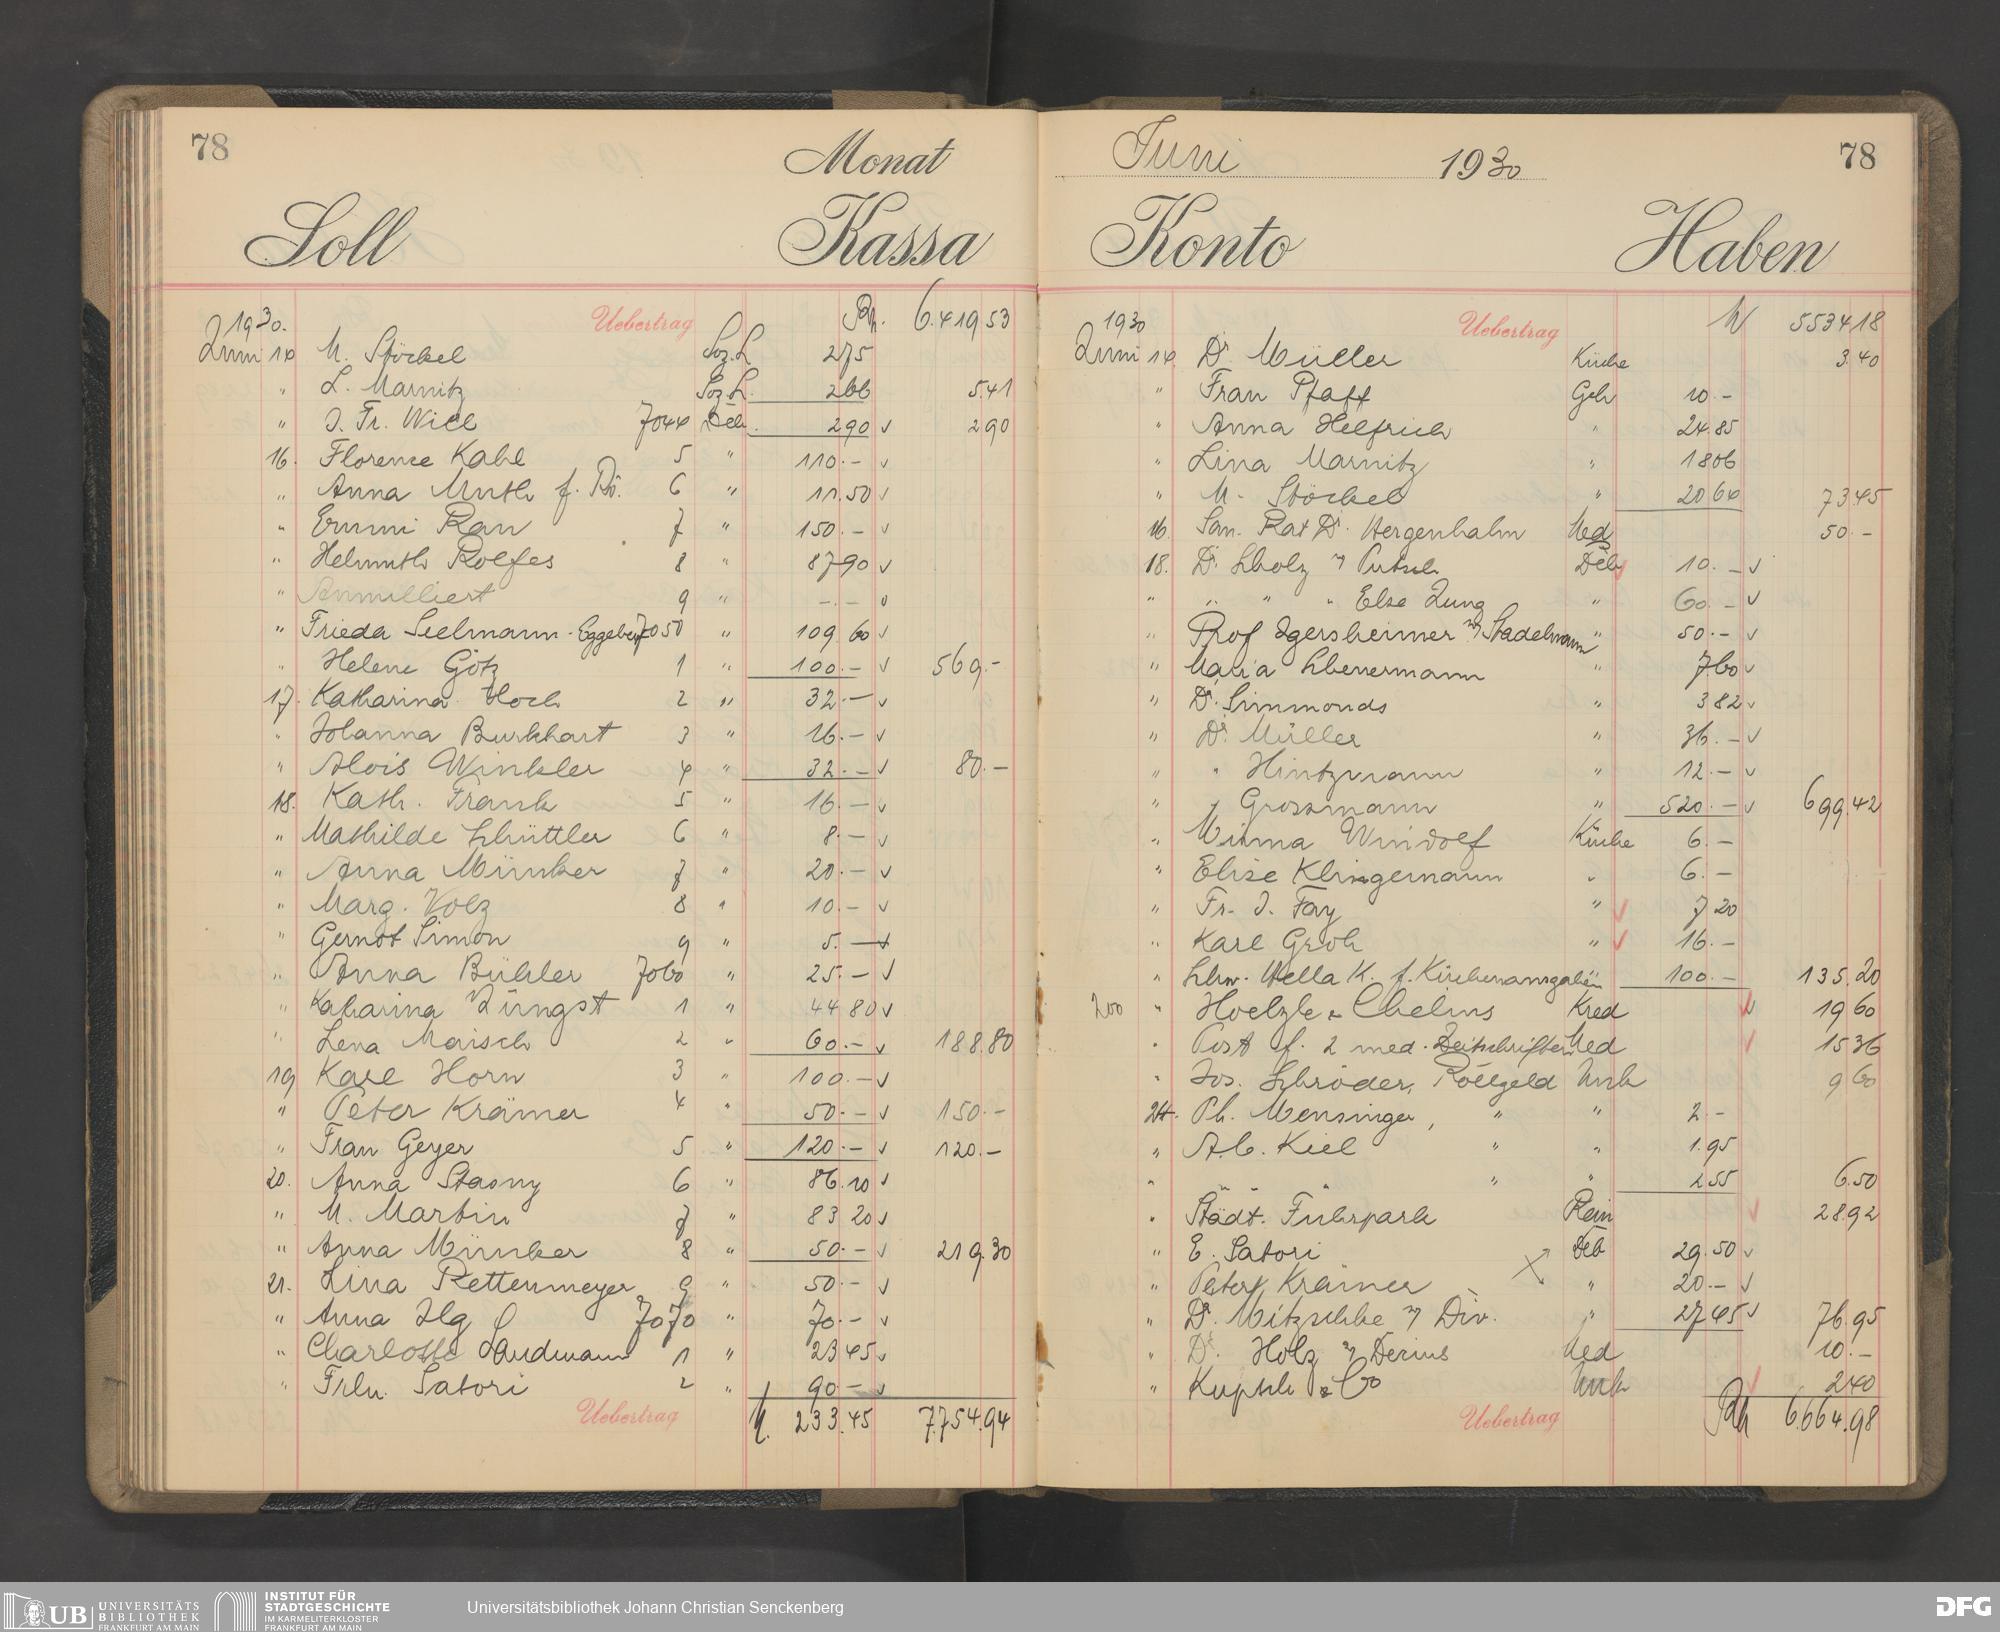 78
Monat
Soll
Kassa
1930.
Uebertrag Rh. 6.419 53
Juni 14 M. Stöckel Soz.L 2 75
" L. Marnitz Soz.L. 2 66 5.41
" J. Fr. Will 7044 Deb. 2 90 v 2 90
16. Florence Kahl 5 " 110.- v
" Anna Muth f. Rö. 6 " 11.50 v
" Emmi Rau 7 " 150.- v
" Helmuth Rolfes 8 " 87 90 v
" Annulliert 9 " -.-
" Frieda Seelmann-Eggebert 7050 " 109 60 v
" Helene Götz 1 " 100.- v 569.-
17. Katharina Hoch 2 " 32.- v
" Johanna Burkhart 3 " 16.- v
" Alois Winkler 4 " 32.- v 80.-
18. Kath. Frank 5 " 16.- v
" Mathilde Schüttler 6 " 8.- v
" Anna Münker 7 " 20.- v
" Marg. Volz 8 " 10.- v
" Gernot Simon 9 " 5.- v
" Anna Bühler 7060 " 25.- v
" Katharina Züngst 1 " 44 80 v
" Lena Maisch 2 " 60.- v 188.80
19 Karl Horn 3 " 100.- v
" Peter Krämer 4 " 50.- v 150.-
" Frau Geyer 5 " 120.- v 120.-
20. Anna Stasny 6 " 86.10 v
" M. Martin 7 " 83 20 v
" Anna Münker 8 " 50.- v 219.30
21. Lina Rettenmeyer 9 " 50.- v
" Anna Ilg 7070 " 70.- v
" Charlotte Landmann 1 " 23 45 v
" Frln. Satori 2 " 90.- v
Uebertrag M. 233.45 7.754.94
Juni 1930
78
Konto
Haben
1930
Uebertrag M 5534 18
Juni 14. Dr. Müller Küche 3.40
" Frau Pfaff Geh 10.-
" Anna Helfrich " 24.85
" Lina Marnitz " 18 06
" M. Stöckel " 20 64 73 45
16. San. Rat Dr. Hergenhahn Med 50.-
18. Dr. Scholz Putsch Deb 10.- v
" " " " Else Jung " 60.- v
" Prof Igersheimer Stadelmann " 50.- v
" Maria Scheuermann " 7.60 v
" Dr. Simmonds " 3 82 v
" Dr. Müller " 36.- v
" " Hintzmann " 12.- v
" " Grossmann " 520.- v 699.42
" Minna Windolf Küche 6.-
" Elise Klingemann " 6.-
" Fr. J. Fay " 7 20
" Karl Groh " 16.-
" Schw. Hella K. f. Küchenausgaben 100.- 135.20
200 " Hoelzle & Chelius Kred 19 60
" Post f. 2 med. Zeitschriften Med 15 36
" Jos. Schröder, Rollgeld Unk 9 60
24. Ph. Mensinger, " " 2.-
" A.C. Kiel " " 1.95
" " " " " 2 55 6.50
" Städt. Fuhrpark Rein 28.92
" E. Satori Deb 29.50 v
" Peter Krämer " 20.- v
" Dr. Nitzschke Div. " 27 45 v 76.95
" Dr. Holz Med 10.-
" Kupsch & Co Unk 2 40
Uebertrag 6.664.98
UB UNIVERSITÄTS BIBLIOTHEK FRANKFURT AM MAIN
INSTITUT FÜR STADTGESCHICHTE IM KARMELITERKLOSTER FRANKFURT AM MAIN
Universitätsbibliothek Johann Christian Senckenberg
DFG